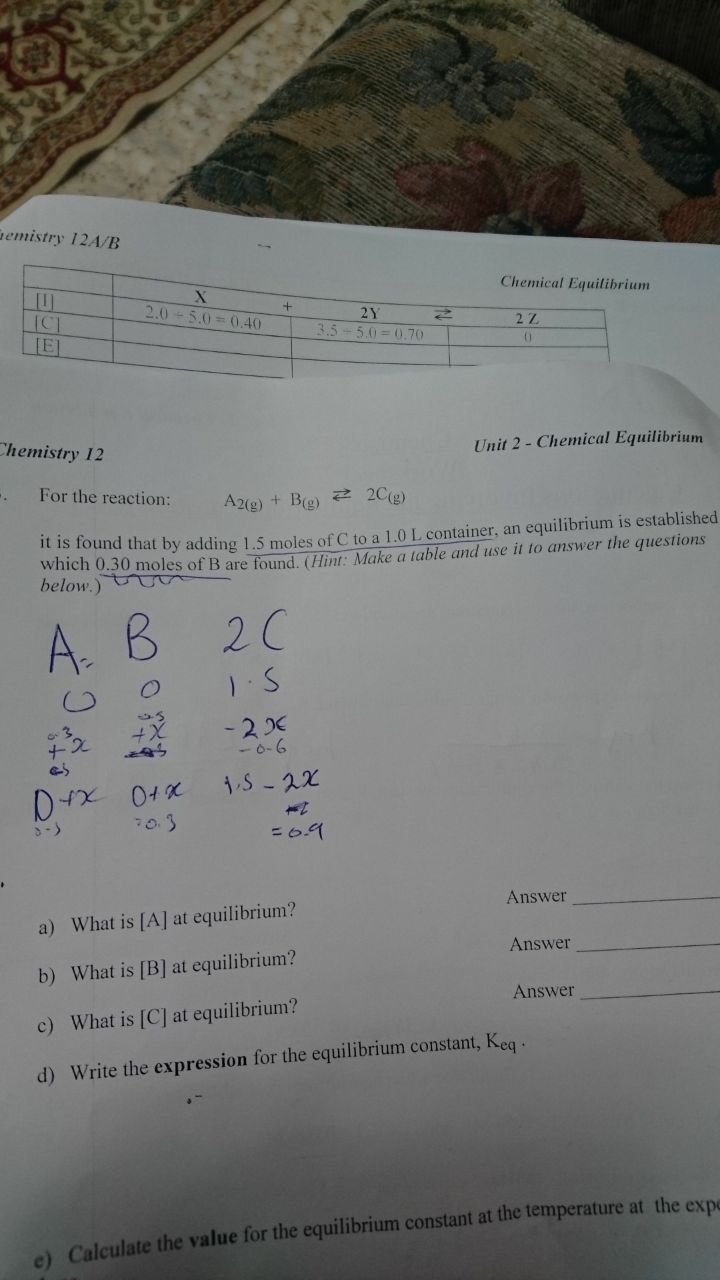 hemistry 12A/B
Chemical Equilibrium
X + 2Y ⇄ 2 Z
[I] 2.0 ÷ 5.0 = 0.40 3.5 ÷ 5.0 = 0.70 0
[C]
[E]
Chemistry 12
Unit 2 - Chemical Equilibrium
. For the reaction: A2(g) + B(g) ⇄ 2C(g)
it is found that by adding 1.5 moles of C to a 1.0 L container, an equilibrium is established
which 0.30 moles of B are found. (Hint: Make a table and use it to answer the questions
below.)
A2 B 2C
0 0 1.5
0.3
+x +x -2x
-0.6
0+x 0+x 1.5-2x
=0.3 =0.9
a) What is [A] at equilibrium? Answer
b) What is [B] at equilibrium? Answer
c) What is [C] at equilibrium? Answer
d) Write the expression for the equilibrium constant, Keq .
e) Calculate the value for the equilibrium constant at the temperature at the expe